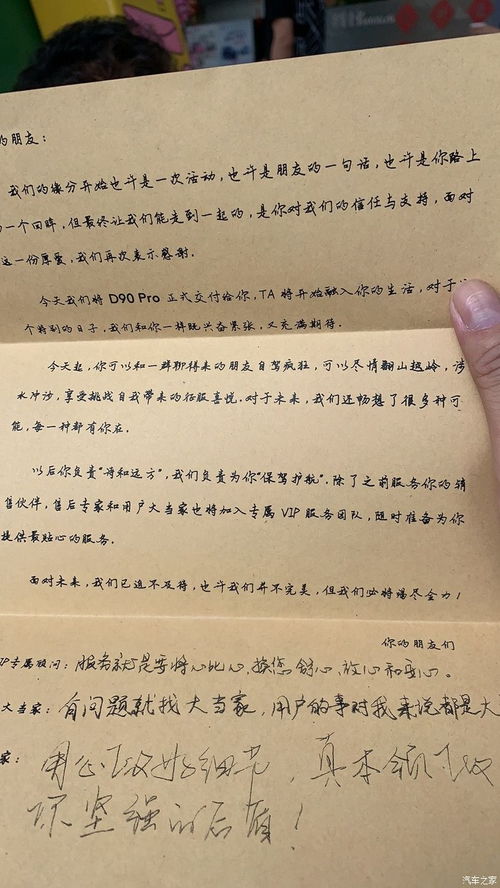 的朋友：
我们的缘分开始也许是一次活动，也许是朋友的一句话，也许是你路上
一个回眸，但最终让我们能走到一起的，是你对我们的信任与支持，面对
这一份厚爱，我们再次表示感谢。
今天我们将 D90 Pro 正式交付给你，TA 将开始融入你的生活，对于
个特别的日子，我们和你一样既兴奋紧张，又充满期待。
今天起，你可以和一群聊得来的朋友自驾疯狂，可以尽情翻山越岭，涉
水冲沙，享受挑战自我带来的征服喜悦。对于未来，我们还畅想了很多种可
能，每一种都有你在。
以后你负责“诗和远方”，我们负责为你“保驾护航”。除了之前服务你的销
售伙伴，售后专家和用户大当家也将加入专属 VIP 服务团队，随时准备为你
提供最贴心的服务。
面对未来，我们已迫不及待，也许我们并不完美，但我们必将竭尽全力！
你的朋友们
IP专属顾问：服务就是要将心比心，换您舒心、放心和安心。
大当家：有问题就找大当家，用户的事对我来说都是大
家：用心做好细节，真本领做
坚强的后盾！
汽车之家